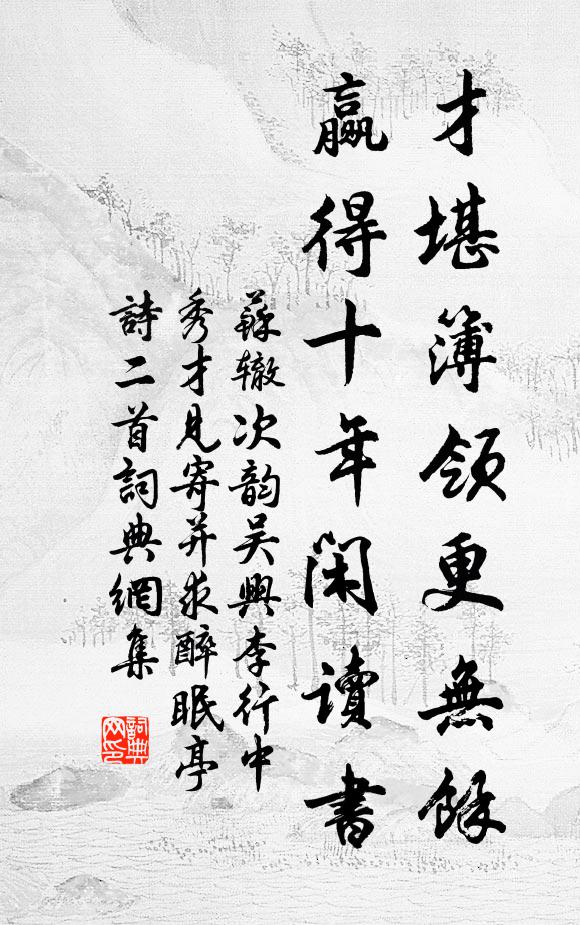 才堪簿領更無餘
贏得十年閑讀書
蘇轍次韵吴興李行中
秀才見寄并求醉眠亭
詩二首詞典網集
詞典
网印